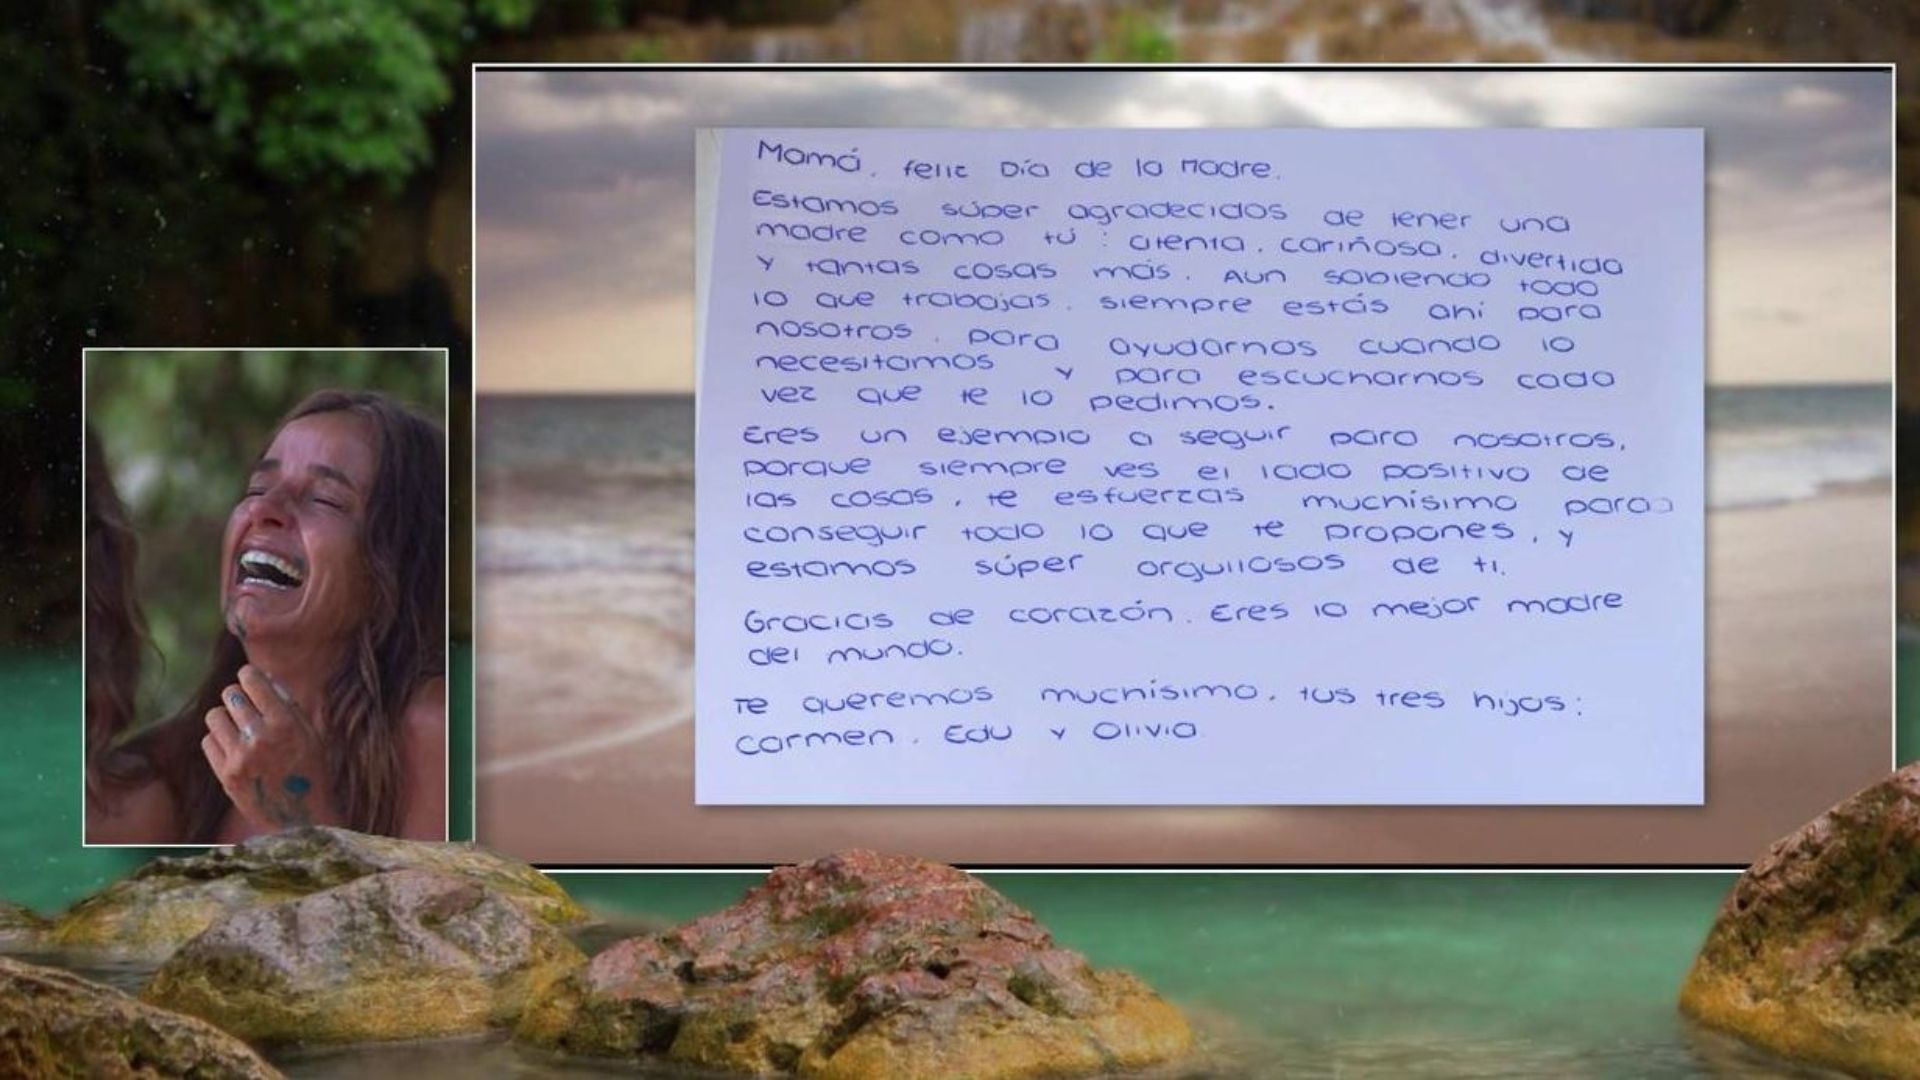 Mamá, feliz Día de la Madre.
Estamos súper agradecidos de tener una
madre como tú: atenta, cariñosa, divertida
y tantas cosas más. Aun sabiendo todo
lo que trabajas, siempre estás ahí para
nosotros, para ayudarnos cuando lo
necesitamos y para escucharnos cada
vez que te lo pedimos.
Eres un ejemplo a seguir para nosotros,
porque siempre ves el lado positivo de
las cosas, te esfuerzas muchísimo para
conseguir todo lo que te propones, y
estamos súper orgullosos de ti.
Gracias de corazón. Eres la mejor madre
del mundo.
Te queremos muchísimo, tus tres hijos:
Carmen, Edu y Olivia